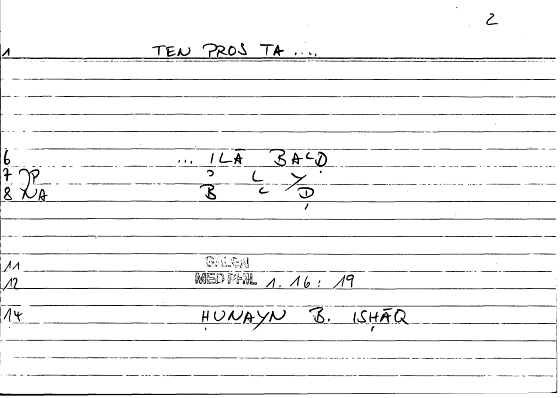 2
1 TEN PROS TA ....
6 ... ILĀ BAʿḌ
7 P ʾ L Y
8 NA B ʿ Ḍ
11 GALEN
12 MED PHIL 1. 16: 19
14 ḤUNAYN B. ISḤĀQ